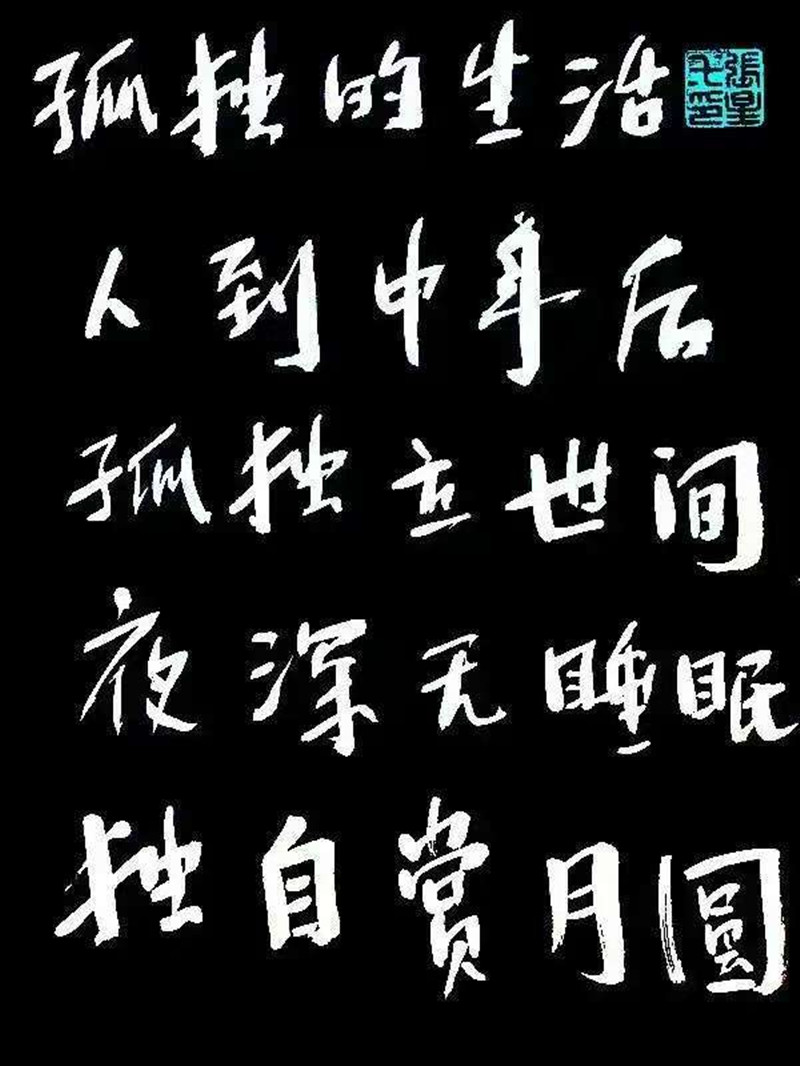 孤独的生活
人到中年后
孤独立世间
夜深无睡眠
独自赏月圆